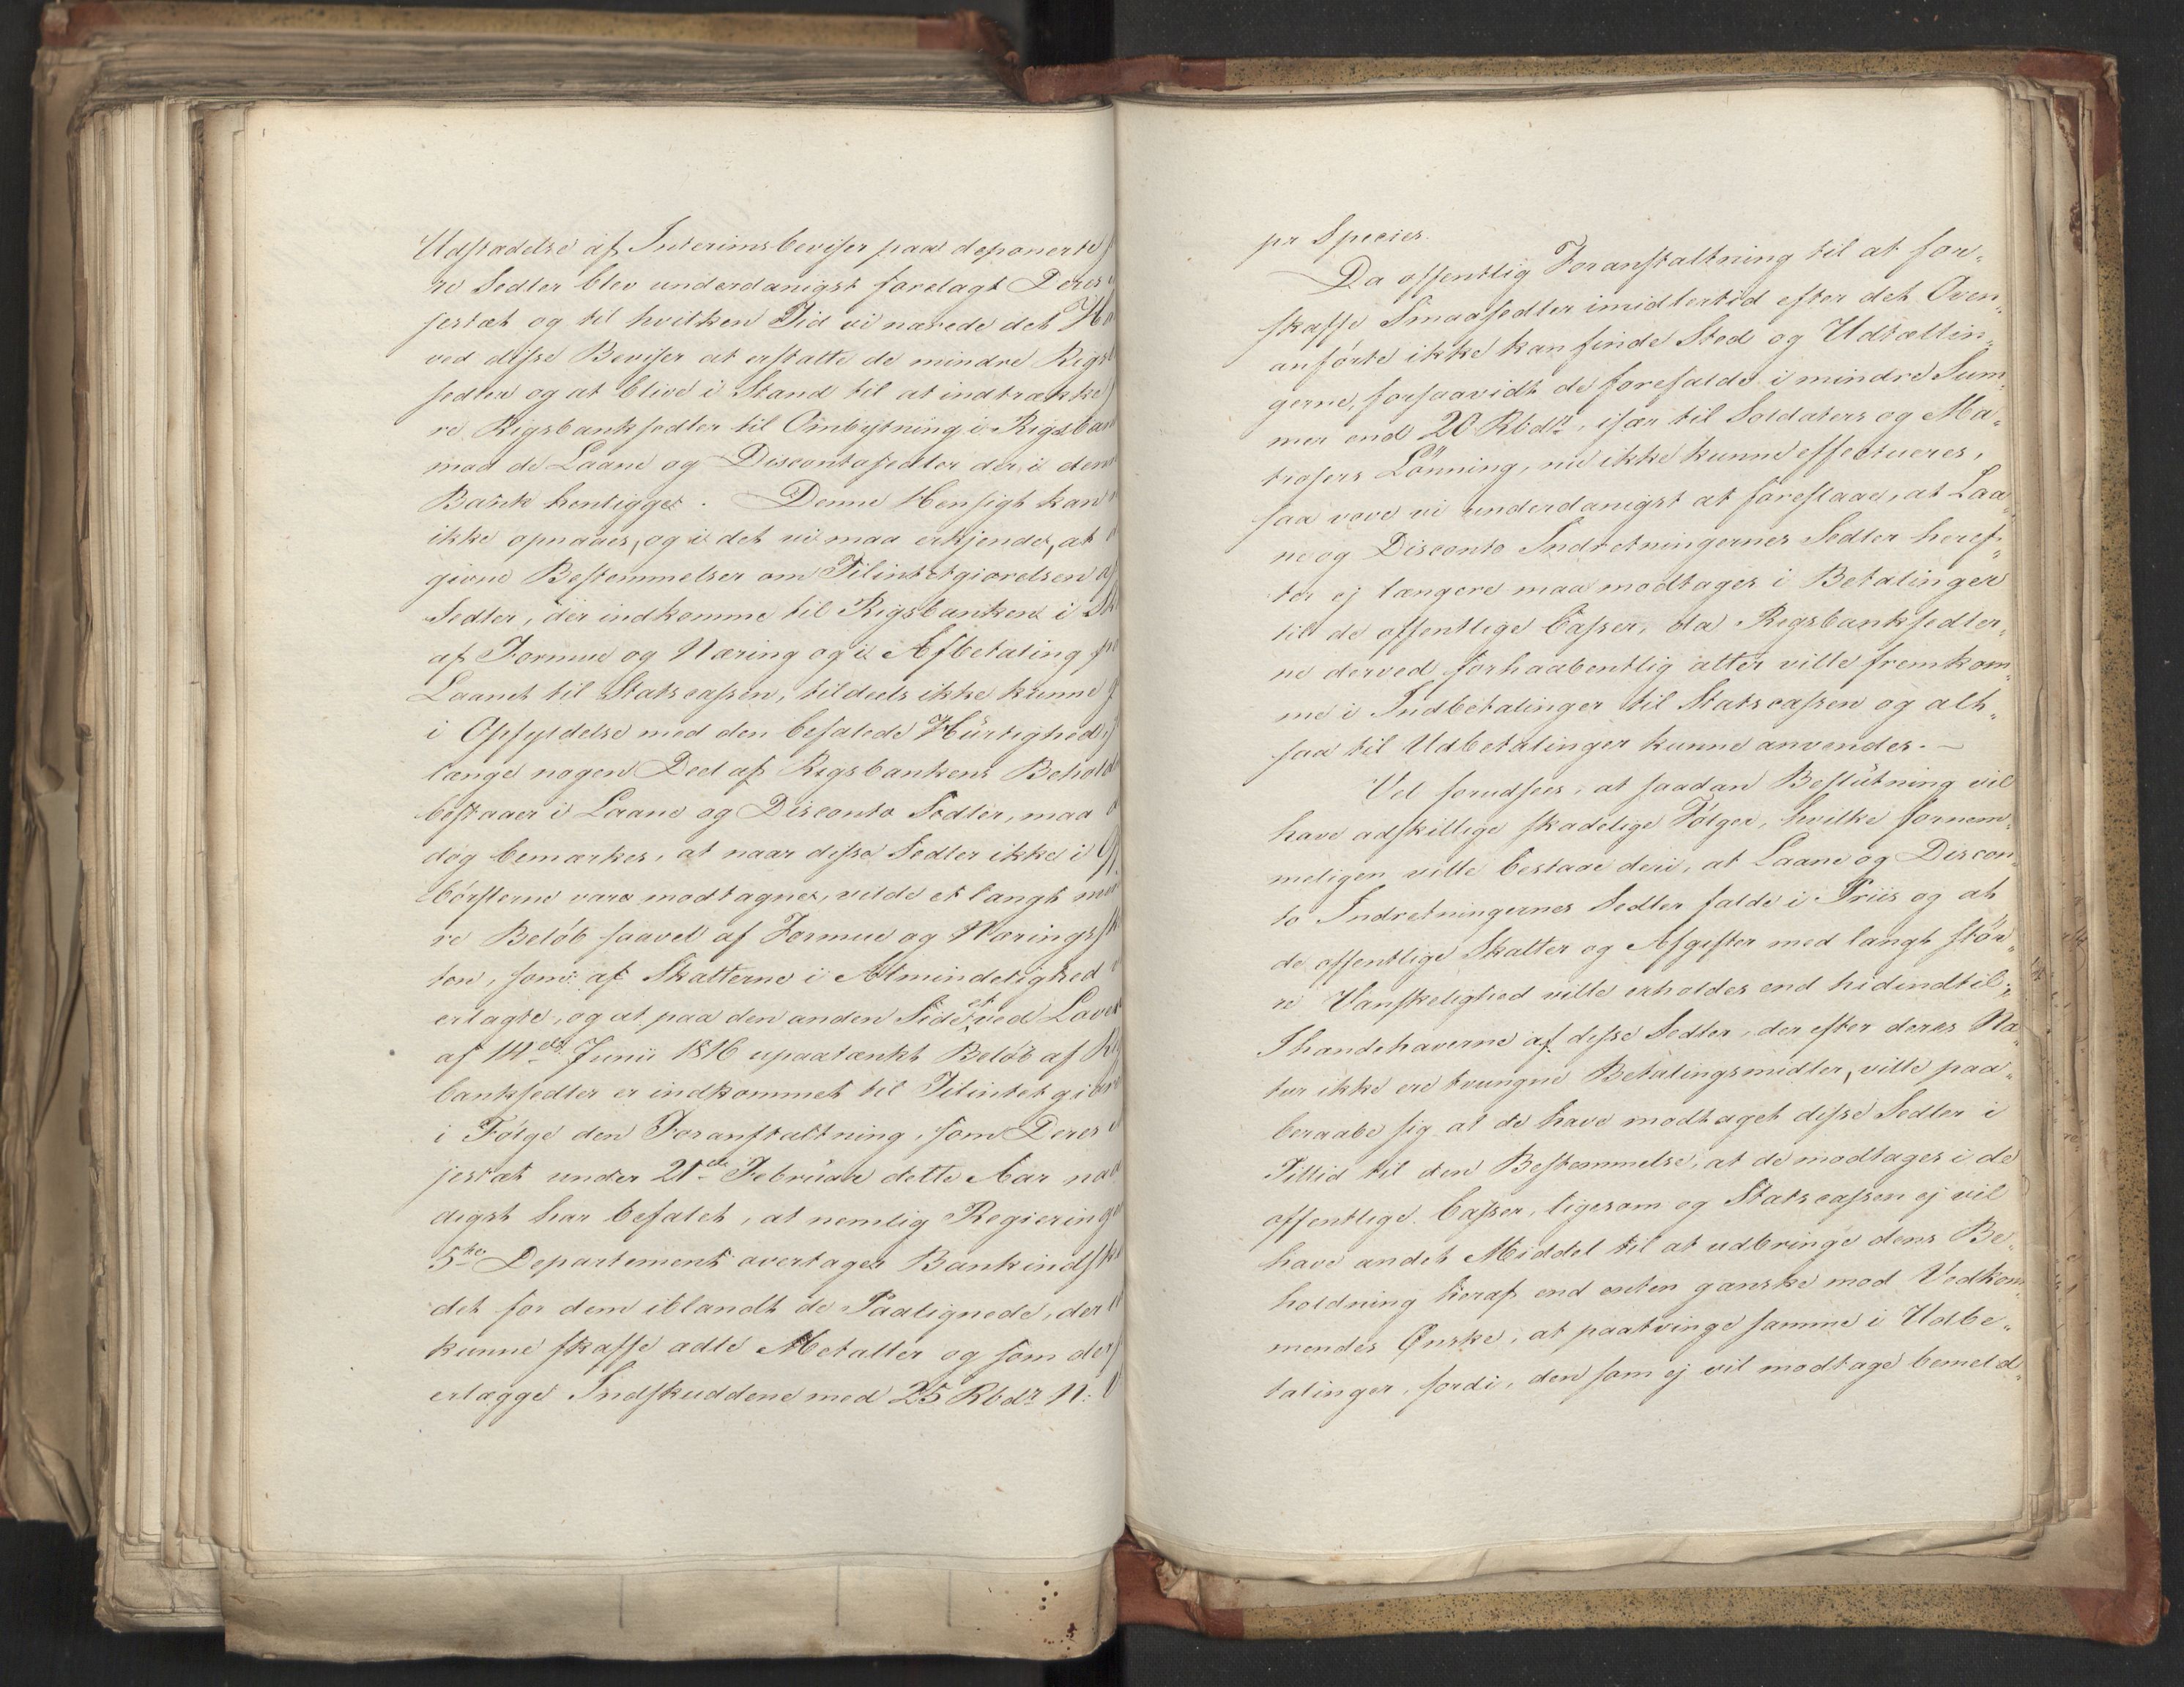 Udstædelse af Interimsbeviser paa deponerte
re Sedler blev underdanigst forelagt Deres
jestæt og til hvilken Tid vi nærede det Ha
ved disse Beviser at erstatte de mindre Rigs
sedler og at blive i Stand til at indtrække
re Rigsbanksedler til Ombytning i Rigsban
mod de Laane og Discontosedler der, i den
Bank henligger. Denne Hensigt kan
ikke opnaaes, og i det vi maa erkjende, at
givne Bestemmelser om Tilintetgiørelsen af
Sedler, der indkomme til Rigsbanken i Sk
af Formue og Næring og i Afbetaling pa
Laanet til Statscassen, tildeels ikke kunne g
i Opfyldelse med den befalede Hurtighed,
længe nogen Deel af Rigsbankens Behold
bestaaer i Laane og Disconto Sedler, maa
dog bemærkes, at naar disse Sedler ikke i
børsterne vare modtagne, vilde et langt min
re Beløb saavel af Formue og Næringssk
ten, som af Skatterne i Almindelighed
erlagte, og at paa den anden Side et ved Loven
af 14de Junii 1816 upaatænkt Beløb af Rig
banksedler er indkommet til Tilintetgiøre
i Følge den Foranstaltning, som Deres
jestæt under 21de Februar dette Aar naa
digst har befalet, at nemlig Regieringe
5te Departement overtager Bankindsku
det for dem iblandt de Paalignede, der
kunne skaffe ædle Metaller og som der
erlægge Indskuddene med 25 Rbdr N: V
pr Species.
Da offentlig Foranstaltning til at for-
skaffe Smaasedler imidlertid efter det Oven-
anførte ikke kan finde Sted og Udtællin-
gerne, forsaavidt de forefalde i mindre Sum-
mer end 20 Rbdr, især til Soldaters og Ma-
trosers Lønning, nu ikke kunne effectueres,
saa vove vi underdanigst at foreslaae, at Laa-
ne og Disconto Indretningernes Sedler heref-
ter ej længere maa modtages i Betalinger
til de offentlige Casser, da Rigsbanksedler-
ne derved forhaabentlig atter ville fremkom-
me i Indbetalinger til Statscassen og alt-
saa til Udbetalinger kunne anvendes. —
Vel forudsees, at saadan Beslutning vil
have adskillige skadelige Følger, hvilke fornem-
meligen ville bestaae deri, at Laane og Discon-
to Indretningernes Sedler falde i Priis og at
de offentlige Skatter og Afgifter med langt stør-
re Vanskelighed ville erholdes end hidindtil;
Ihændehaverne af disse Sedler, der efter deres Na-
tur ikke ere tvungne Betalingsmidler, ville paa-
beraabe sig at de have modtaget disse Sedler i
Tillid til den Bestemmelse, at de modtages i de
offentlige Casser, ligesom og Statscassen ej vil
have andet Middel til at udbringe dens Be-
holdning heraf end enten ganske mod Vedkom-
mendes Ønske, at paatvinge samme i Udbe-
talinger, fordi, den som ej vil modtage bemeld-